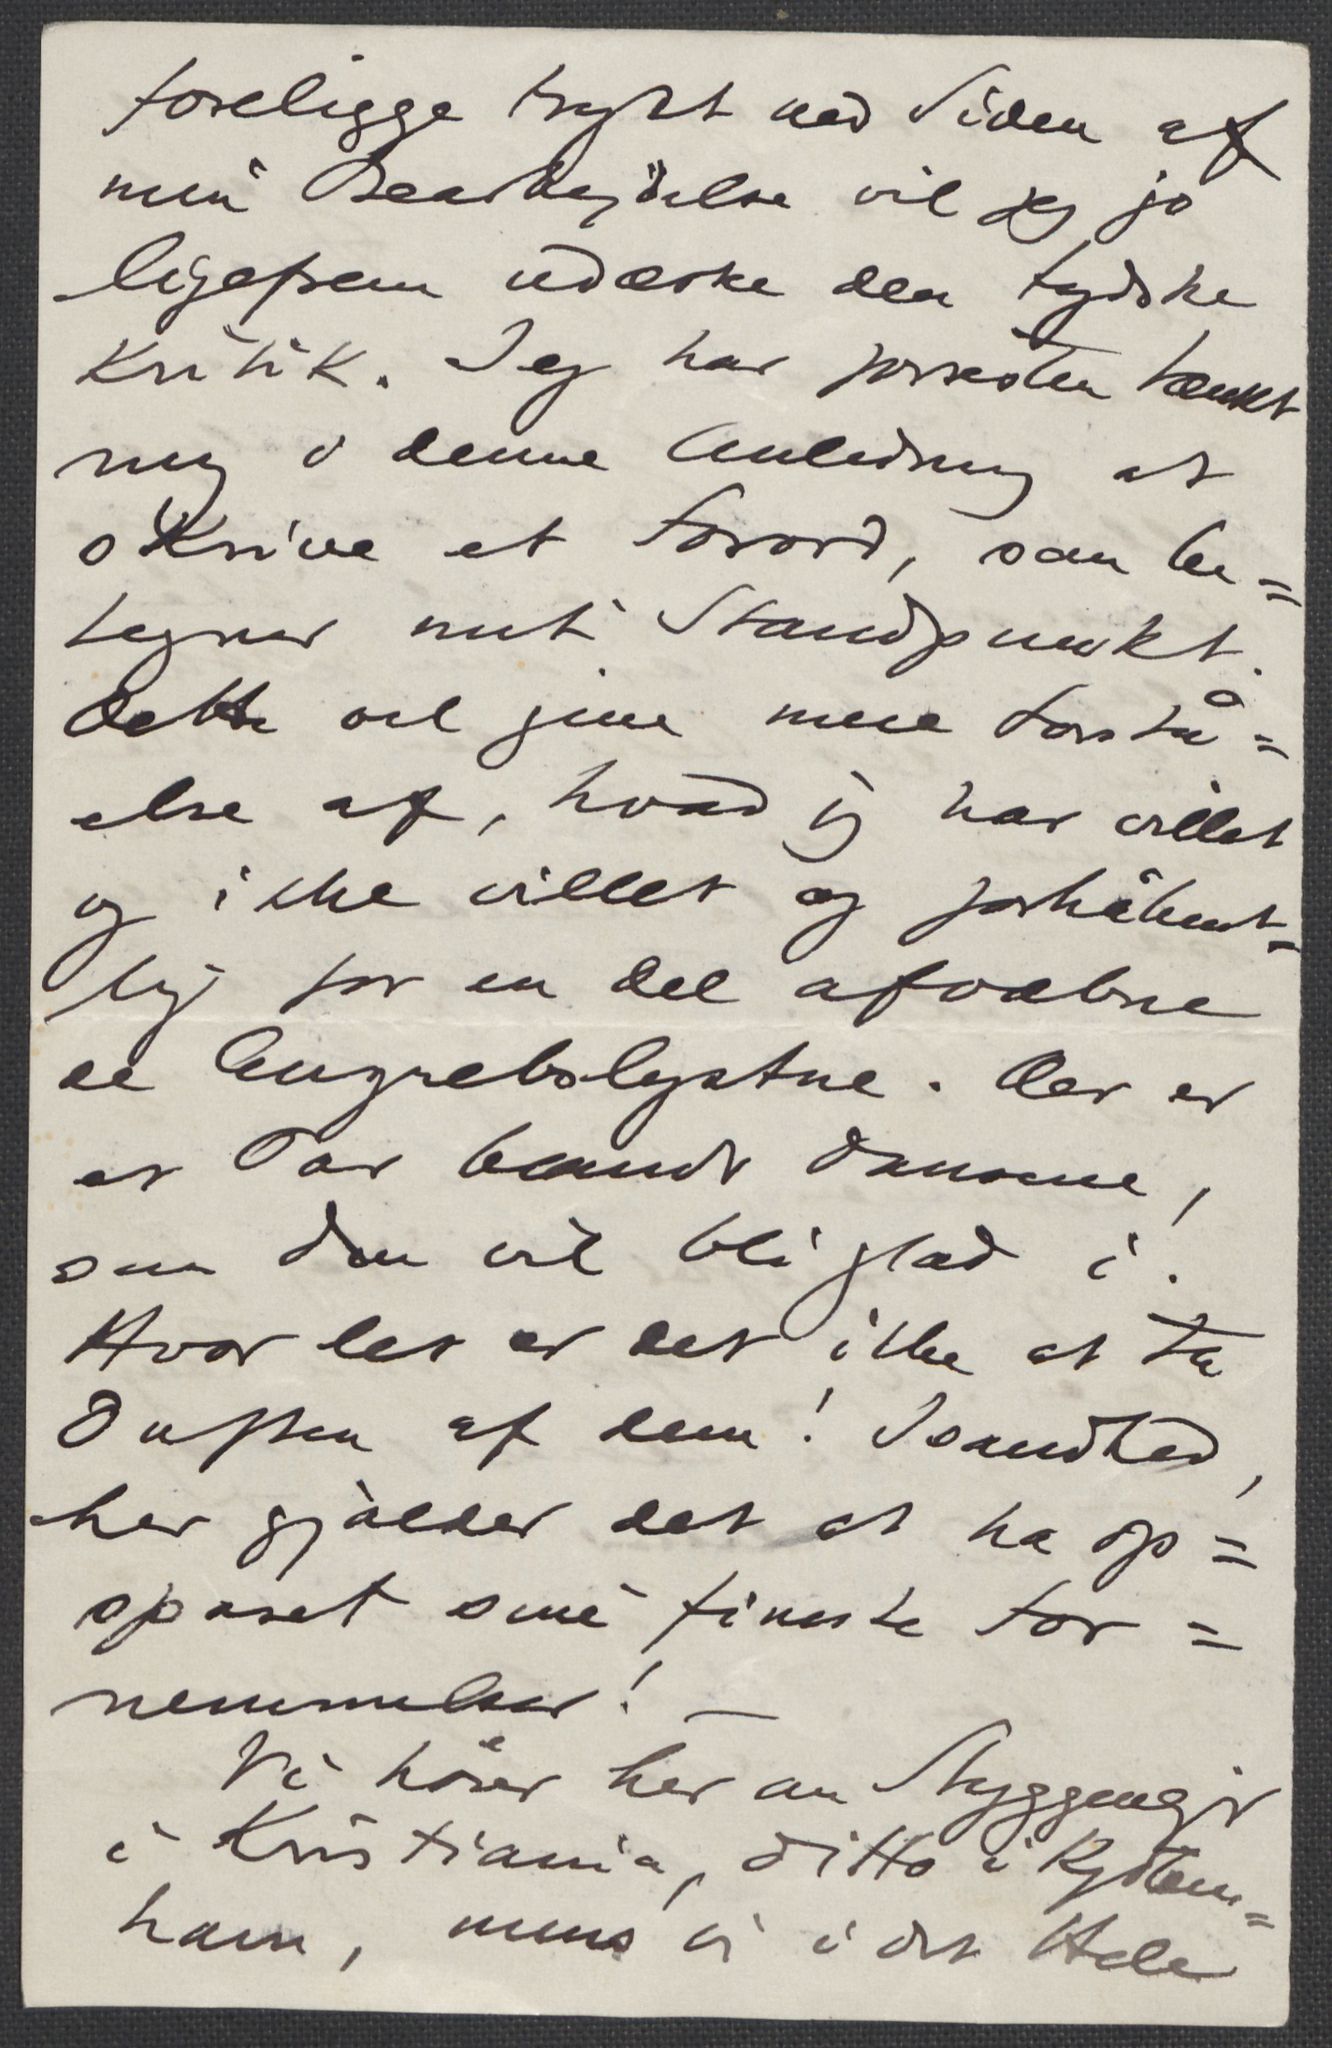 foreligge trykt ved Siden af
min Bearbejdelse vil jeg jo
ligefrem udæske den tydske
Kritik. Jeg har forresten tænkt
mig i denne Anledning at
skrive et Forord, som be=
tegner mit Standpunkt.
Dette vil give mere Forstå=
else af, hvad jeg har villet
og ikke villet og forhåbent=
lig for en del afvæbne
de Angrebslystne. Der er
et Par blandt Dansene,
som Du vil bli glad i.
Hvor let er det ikke at ta
Duften af dem! Isandhed,
her gjælder det at ha op=
sparet sine fineste For=
nemmelser! —
Vi hører her om Styggevejr
i Kristiania, ditto i Kjöben=
havn, mens vi i det Hele